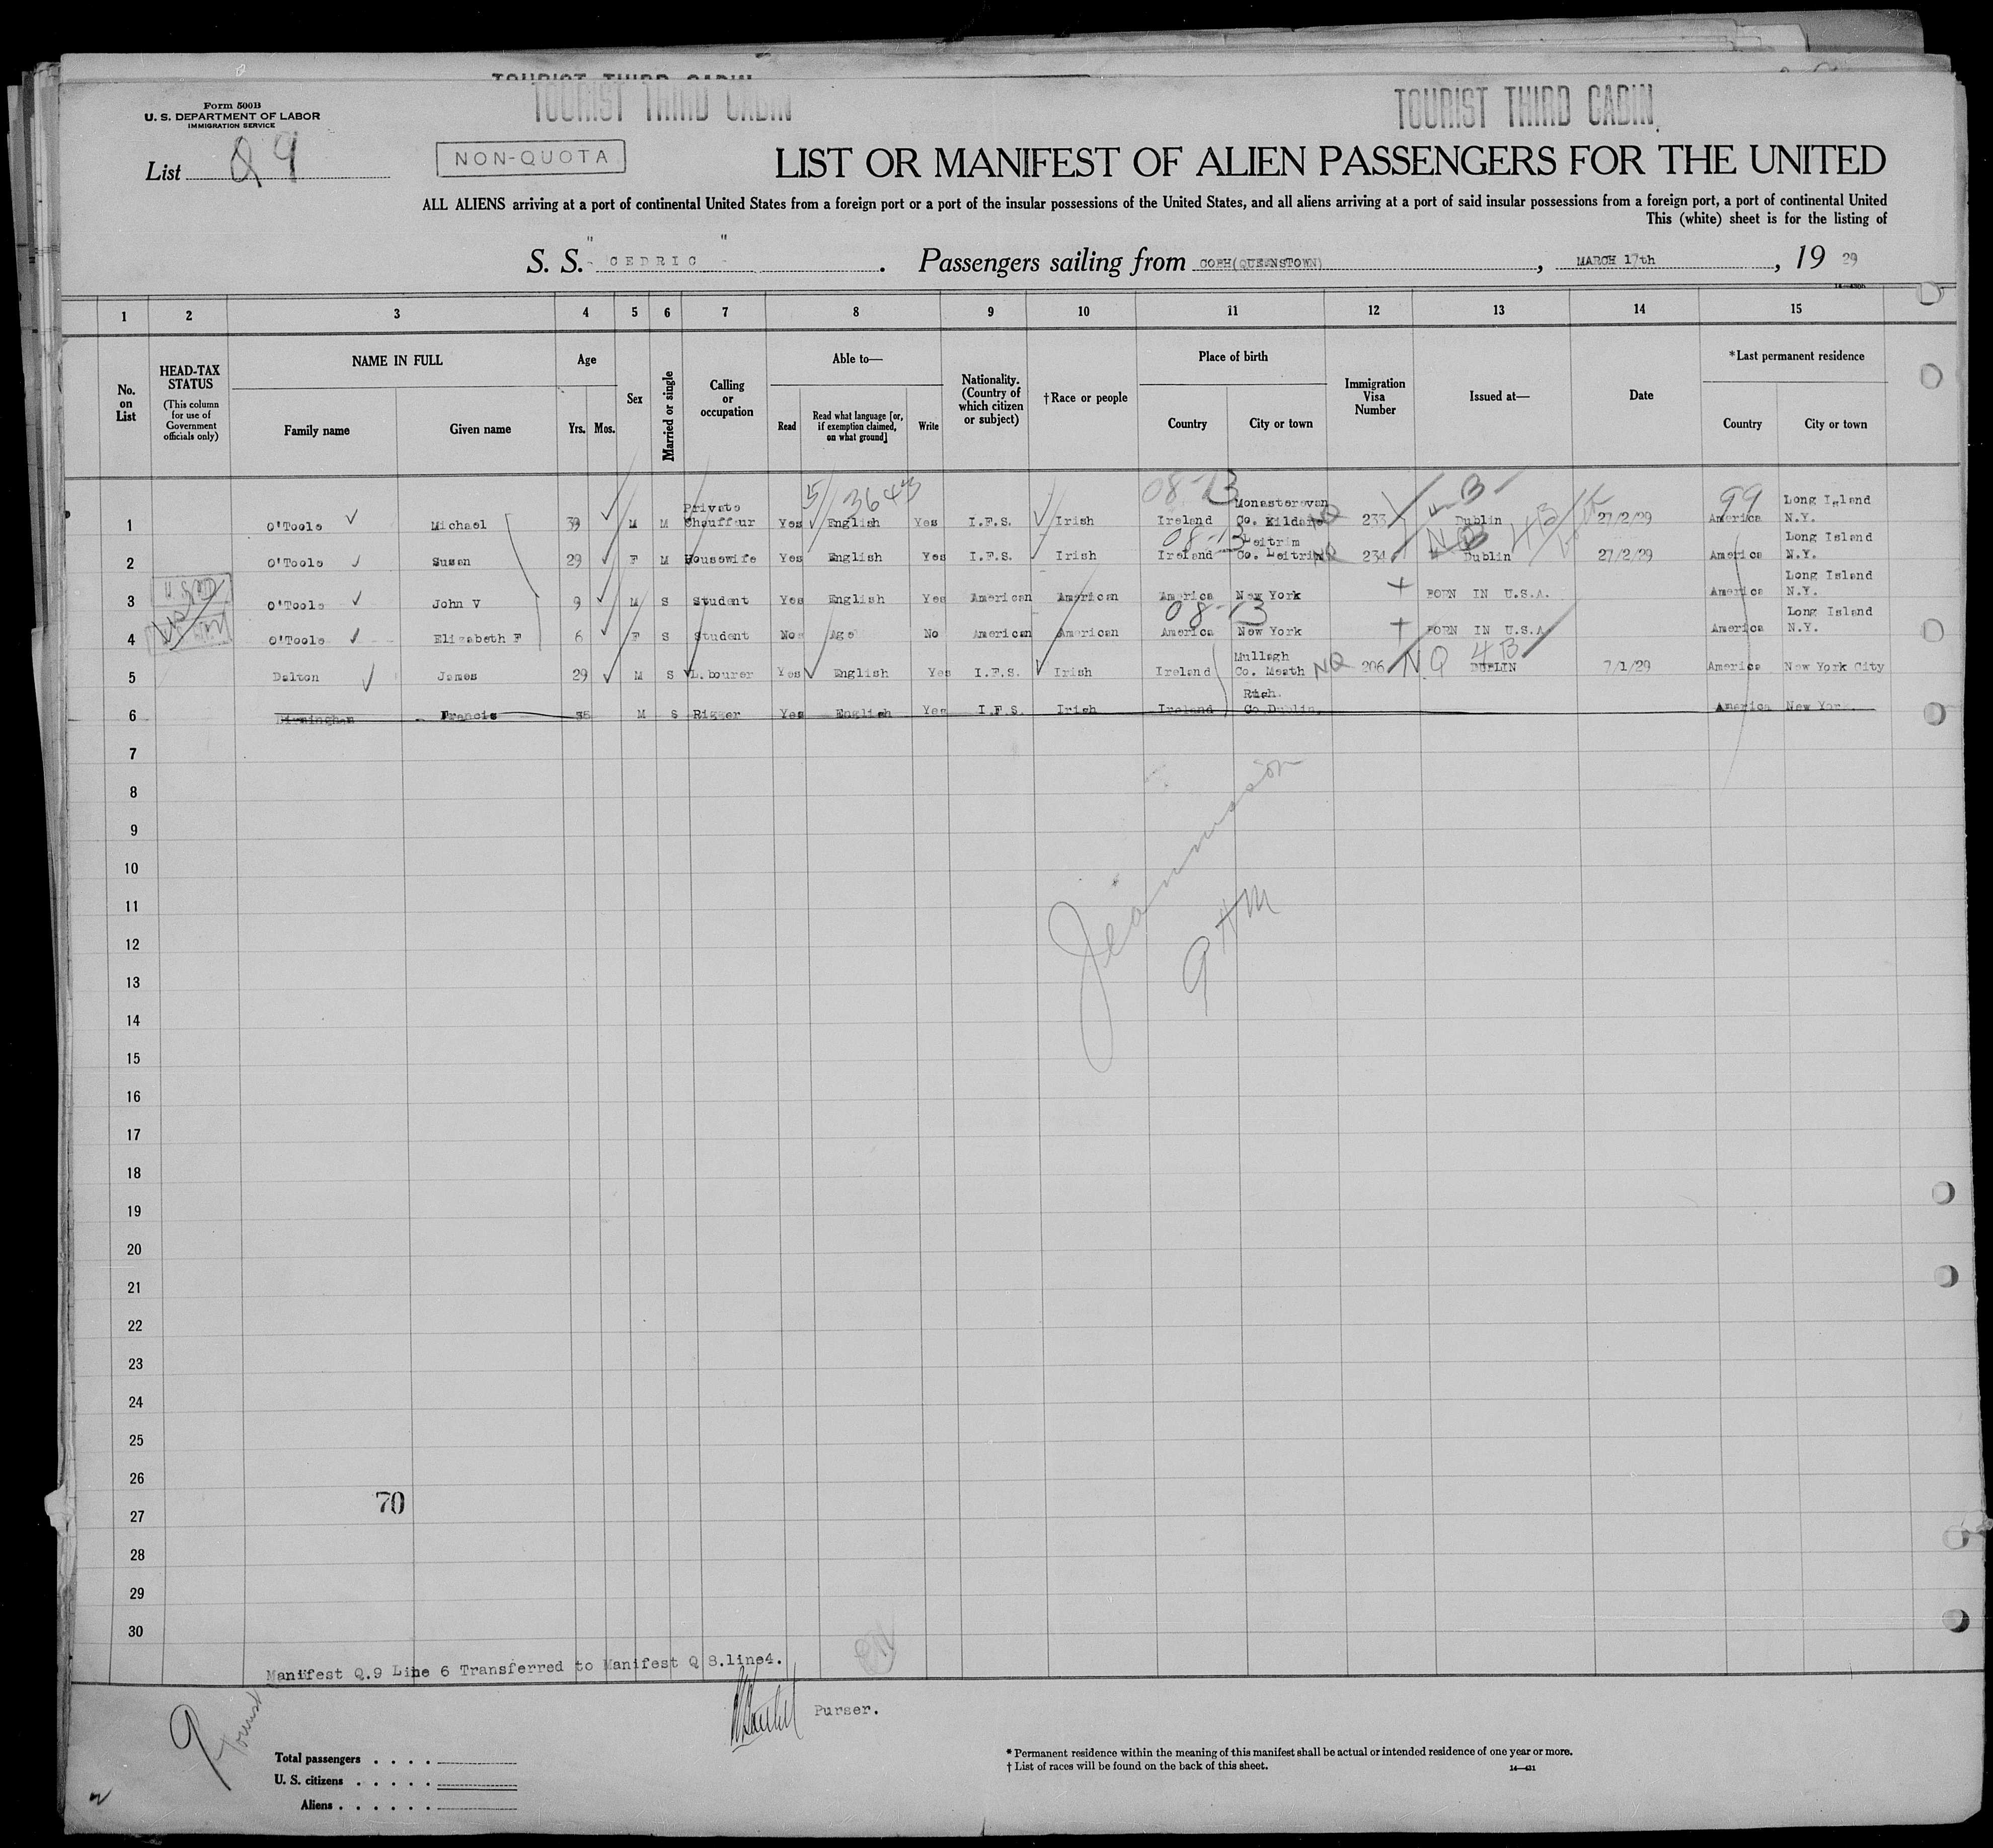 TOURIST THIRD CABIN
TOURIST THIRD CABIN
TOURIST THIRD CABIN
Form 500B
U. S. DEPARTMENT OF LABOR
IMMIGRATION SERVICE
List Q 9
NON-QUOTA
LIST OR MANIFEST OF ALIEN PASSENGERS FOR THE UNITED
ALL ALIENS arriving at a port of continental United States from a foreign port or a port of the insular possessions of the United States, and all aliens arriving at a port of said insular possessions from a foreign port, a port of continental United
This (white) sheet is for the listing of
S. S. " CEDRIC " . Passengers sailing from COBH(QUEENSTOWN) , MARCH 17th , 19 29
1 2 3 4 5 6 7 8 9 10 11 12 13 14 15
No. on List
HEAD-TAX STATUS
(This column for use of Government officials only)
NAME IN FULL
Family name Given name
Age
Yrs. Mos.
Sex
Married or single
Calling or occupation
Able to—
Read Read what language [or, if exemption claimed, on what ground] Write
Nationality. (Country of which citizen or subject)
†Race or people
Place of birth
Country City or town
Immigration Visa Number
Issued at—
Date
*Last permanent residence
Country City or town
5/ 3643 08-13 B 99
1 O'Toole Michael 39 M M Private Chauffeur Yes English Yes I.F.S. Irish Ireland Monasterevan Co. Kildare NQ 233 Dublin 27/2/29 America Long Island N.Y.
08-13 NQ 4B
2 O'Toole Susan 29 F M Housewife Yes English Yes I.F.S. Irish Ireland Leitrim Co. Leitrim NQ 234 Dublin 27/2/29 America Long Island N.Y.
3 O'Toole John V 9 M S Student Yes English Yes American American America New York BORN IN U.S.A. America Long Island N.Y.
08-13
4 O'Toole Elizabeth F 6 F S Student No Age No American American America New York BORN IN U.S.A. America Long Island N.Y.
5 Dalton James 29 M S Labourer Yes English Yes I.F.S. Irish Ireland Mullagh Co. Meath NQ 206 NQ 4B DUBLIN 7/1/29 America New York City
6 Birmingham Francis 35 M S Rigger Yes English Yes I.F.S. Irish Ireland Rush. Co.Dublin. America New York.
7
8
9
10
11
12
13
14
15
16
17
18
19
20
21
22
23
24
25
26
27
28
29
30
70
Manifest Q.9 Line 6 Transferred to Manifest Q 8.line4.
Purser.
9 Tourist
Total passengers . . . .
U. S. citizens . . . . .
Aliens . . . . . .
* Permanent residence within the meaning of this manifest shall be actual or intended residence of one year or more.
† List of races will be found on the back of this sheet.
14—431